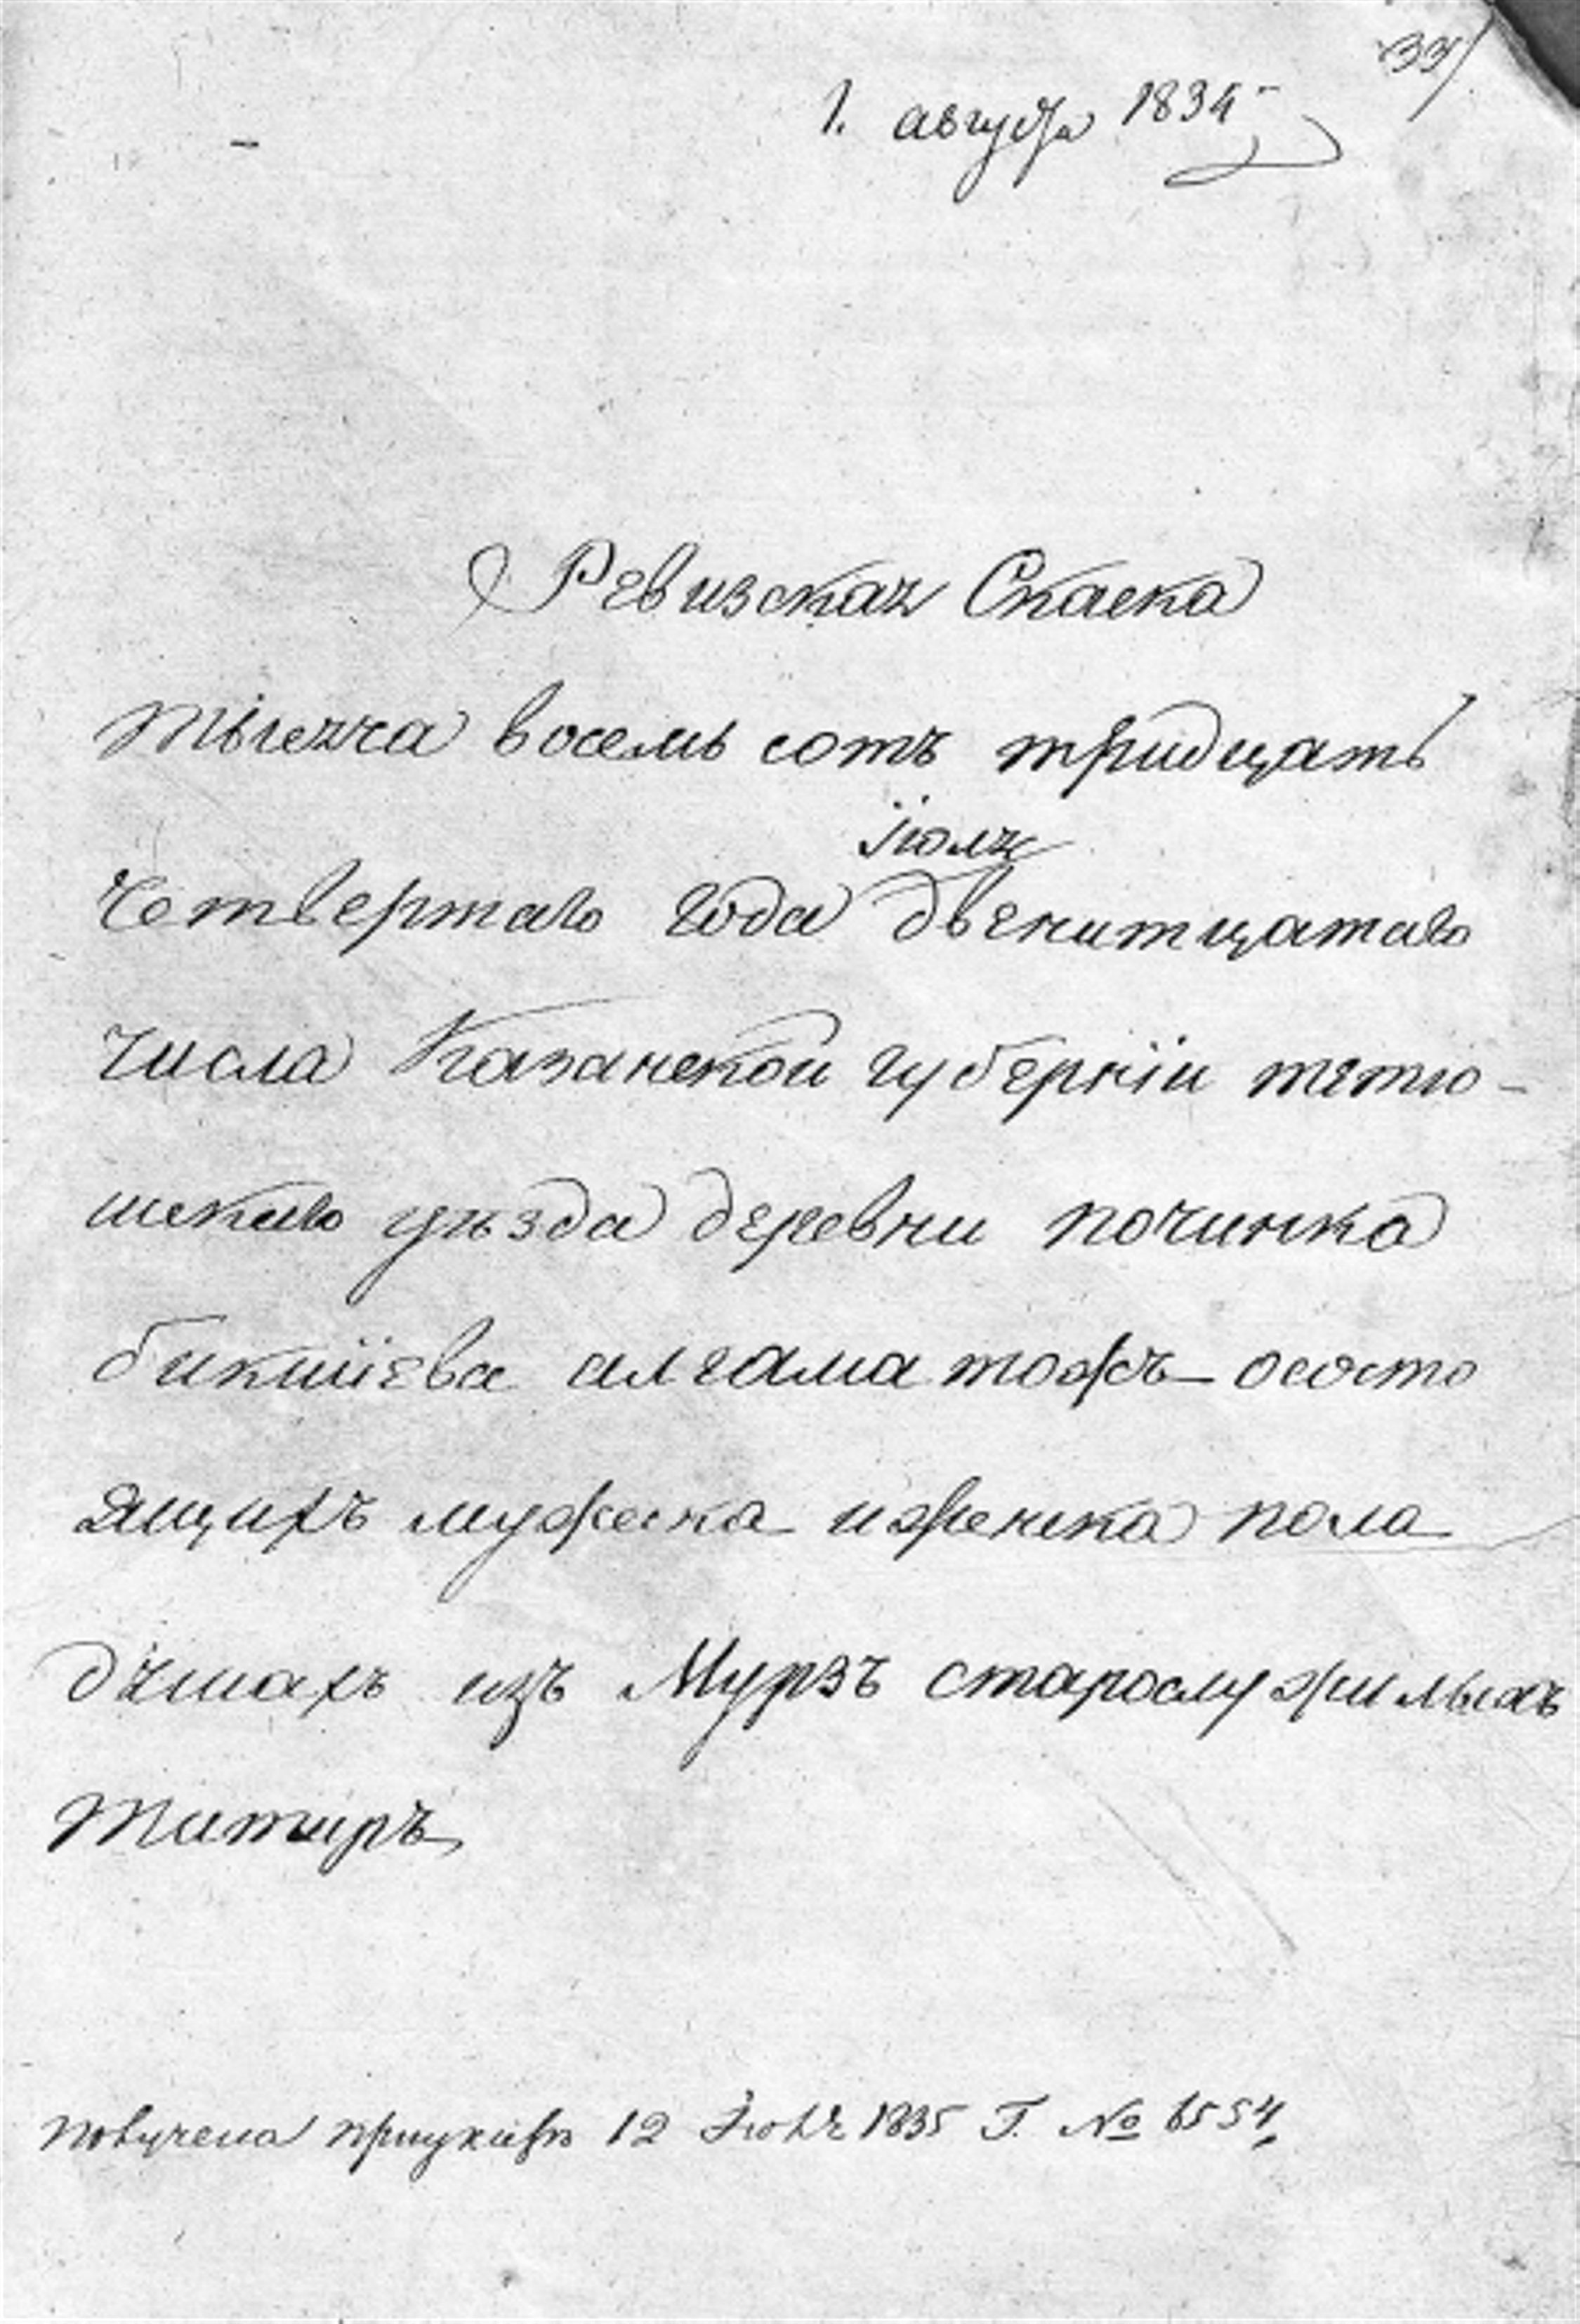 33
1. августа 1834
Ревизская Скаска
тысяча восемь сотъ тридцать
Iюля
четвертаго года двенитцатаго
числа Казанской губернiи тетю-
шскаго уѣзда деревни починка
бикшiева алгама тожъ ососто
ящихъ мужеска иженска пола
душахъ изъ Мурзъ старослужилыхъ
татаръ
получена приуказѣ 12 Iюля 1835 Г. № 6554